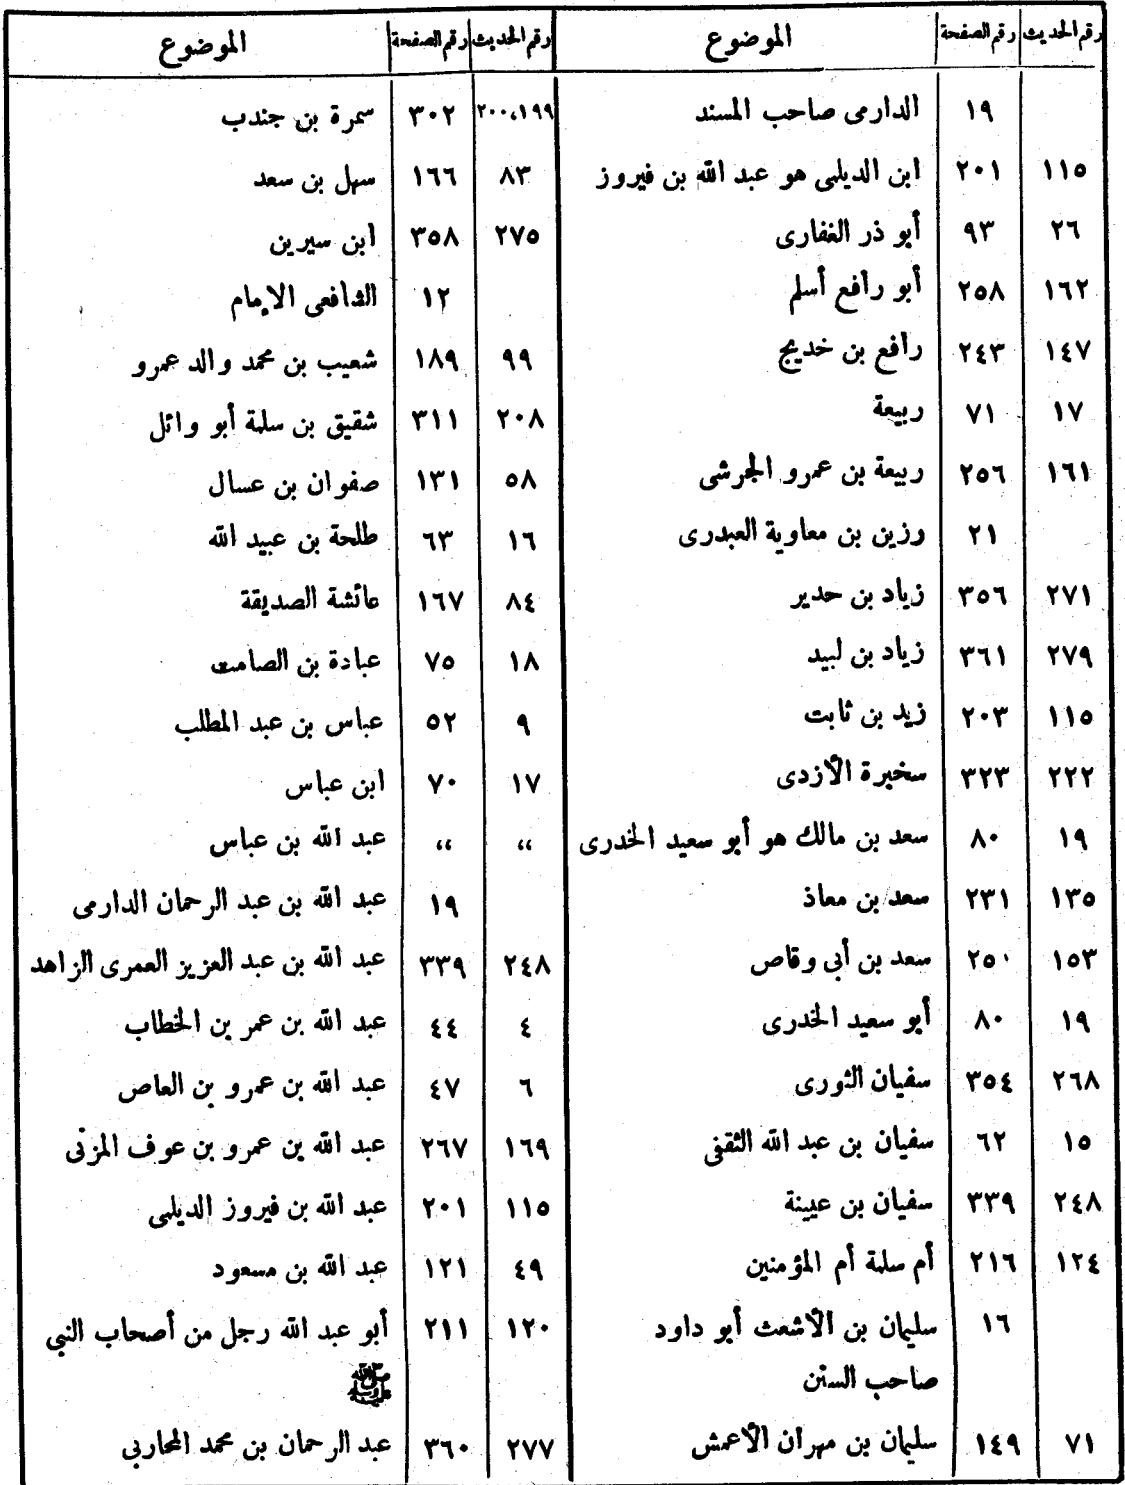 رقم الحديث رقم الصفحة الموضوع
١٩ الدارمى صاحب المسند
١١٥ ٢٠١ ابن الديلمى هو عبد الله بن فيروز
٢٦ ٩٣ أبو ذر الغفارى
١٦٢ ٢٥٨ أبو رافع أسلم
١٤٧ ٢٤٣ رافع بن خديج
١٧ ٧١ ربيعة
١٦١ ٢٥٦ ربيعة بن عمرو الجرشى
٢١ وزين بن معاوية العبدرى
٢٧١ ٣٥٦ زياد بن حدير
٢٧٩ ٣٦١ زياد بن لبيد
١١٥ ٢٠٣ زيد بن ثابت
٢٢٢ ٣٢٣ سخبرة الأزدى
١٩ ٨٠ سعد بن مالك هو أبو سعيد الخدرى
١٣٥ ٢٣١ سعد بن معاذ
١٥٣ ٢٥٠ سعد بن أبى وقاص
١٩ ٨٠ أبو سعيد الخدرى
٢٦٨ ٣٥٤ سفيان الثورى
١٥ ٦٢ سفيان بن عبد الله الثقفى
٢٤٨ ٣٣٩ سفيان بن عيينة
١٢٤ ٢١٦ أم سلمة أم المؤمنين
١٦ سليمان بن الأشعث أبو داود
صاحب السنن
٧١ ١٤٩ سليمان بن مهران الأعمش
رقم الحديث رقم الصفحة الموضوع
٢٠٠،١٩٩ ٣٠٢ سمرة بن جندب
٨٣ ١٦٦ سهل بن سعد
٢٧٥ ٣٥٨ ابن سيرين
١٢ الشافعى الإمام
٩٩ ١٨٩ شعيب بن محمد والد عمرو
٢٠٨ ٣١١ شقيق بن سلمة أبو وائل
٥٨ ١٣١ صفوان بن عسال
١٦ ٦٣ طلحة بن عبيد الله
٨٤ ١٦٧ عائشة الصديقة
١٨ ٧٥ عبادة بن الصامت
٩ ٥٢ عباس بن عبد المطلب
١٧ ٧٠ ابن عباس
،، ،، عبد الله بن عباس
١٩ عبد الله بن عبد الرحمان الدارمى
٢٤٨ ٣٣٩ عبد الله بن عبد العزيز العمرى الزاهد
٤ ٤٤ عبد الله بن عمر بن الخطاب
٦ ٤٧ عبد الله بن عمرو بن العاص
١٦٩ ٢٦٧ عبد الله بن عمرو بن عوف المزنى
١١٥ ٢٠١ عبد الله بن فيروز الديلمى
٤٩ ١٢١ عبد الله بن مسعود
١٢٠ ٢١١ أبو عبد الله رجل من أصحاب النبى
ﷺ
٢٧٧ ٣٦٠ عبد الرحمان بن محمد المحاربى